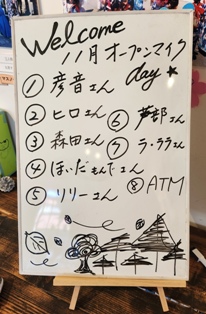 Welcome
11月オープンマイク
day
① 彦音さん
② ヒロさん
③ 森田さん
④ ほいだもんてさん
⑤ リリーさん
⑥ 芦部さん
⑦ ラ・ララさん
⑧ ATM